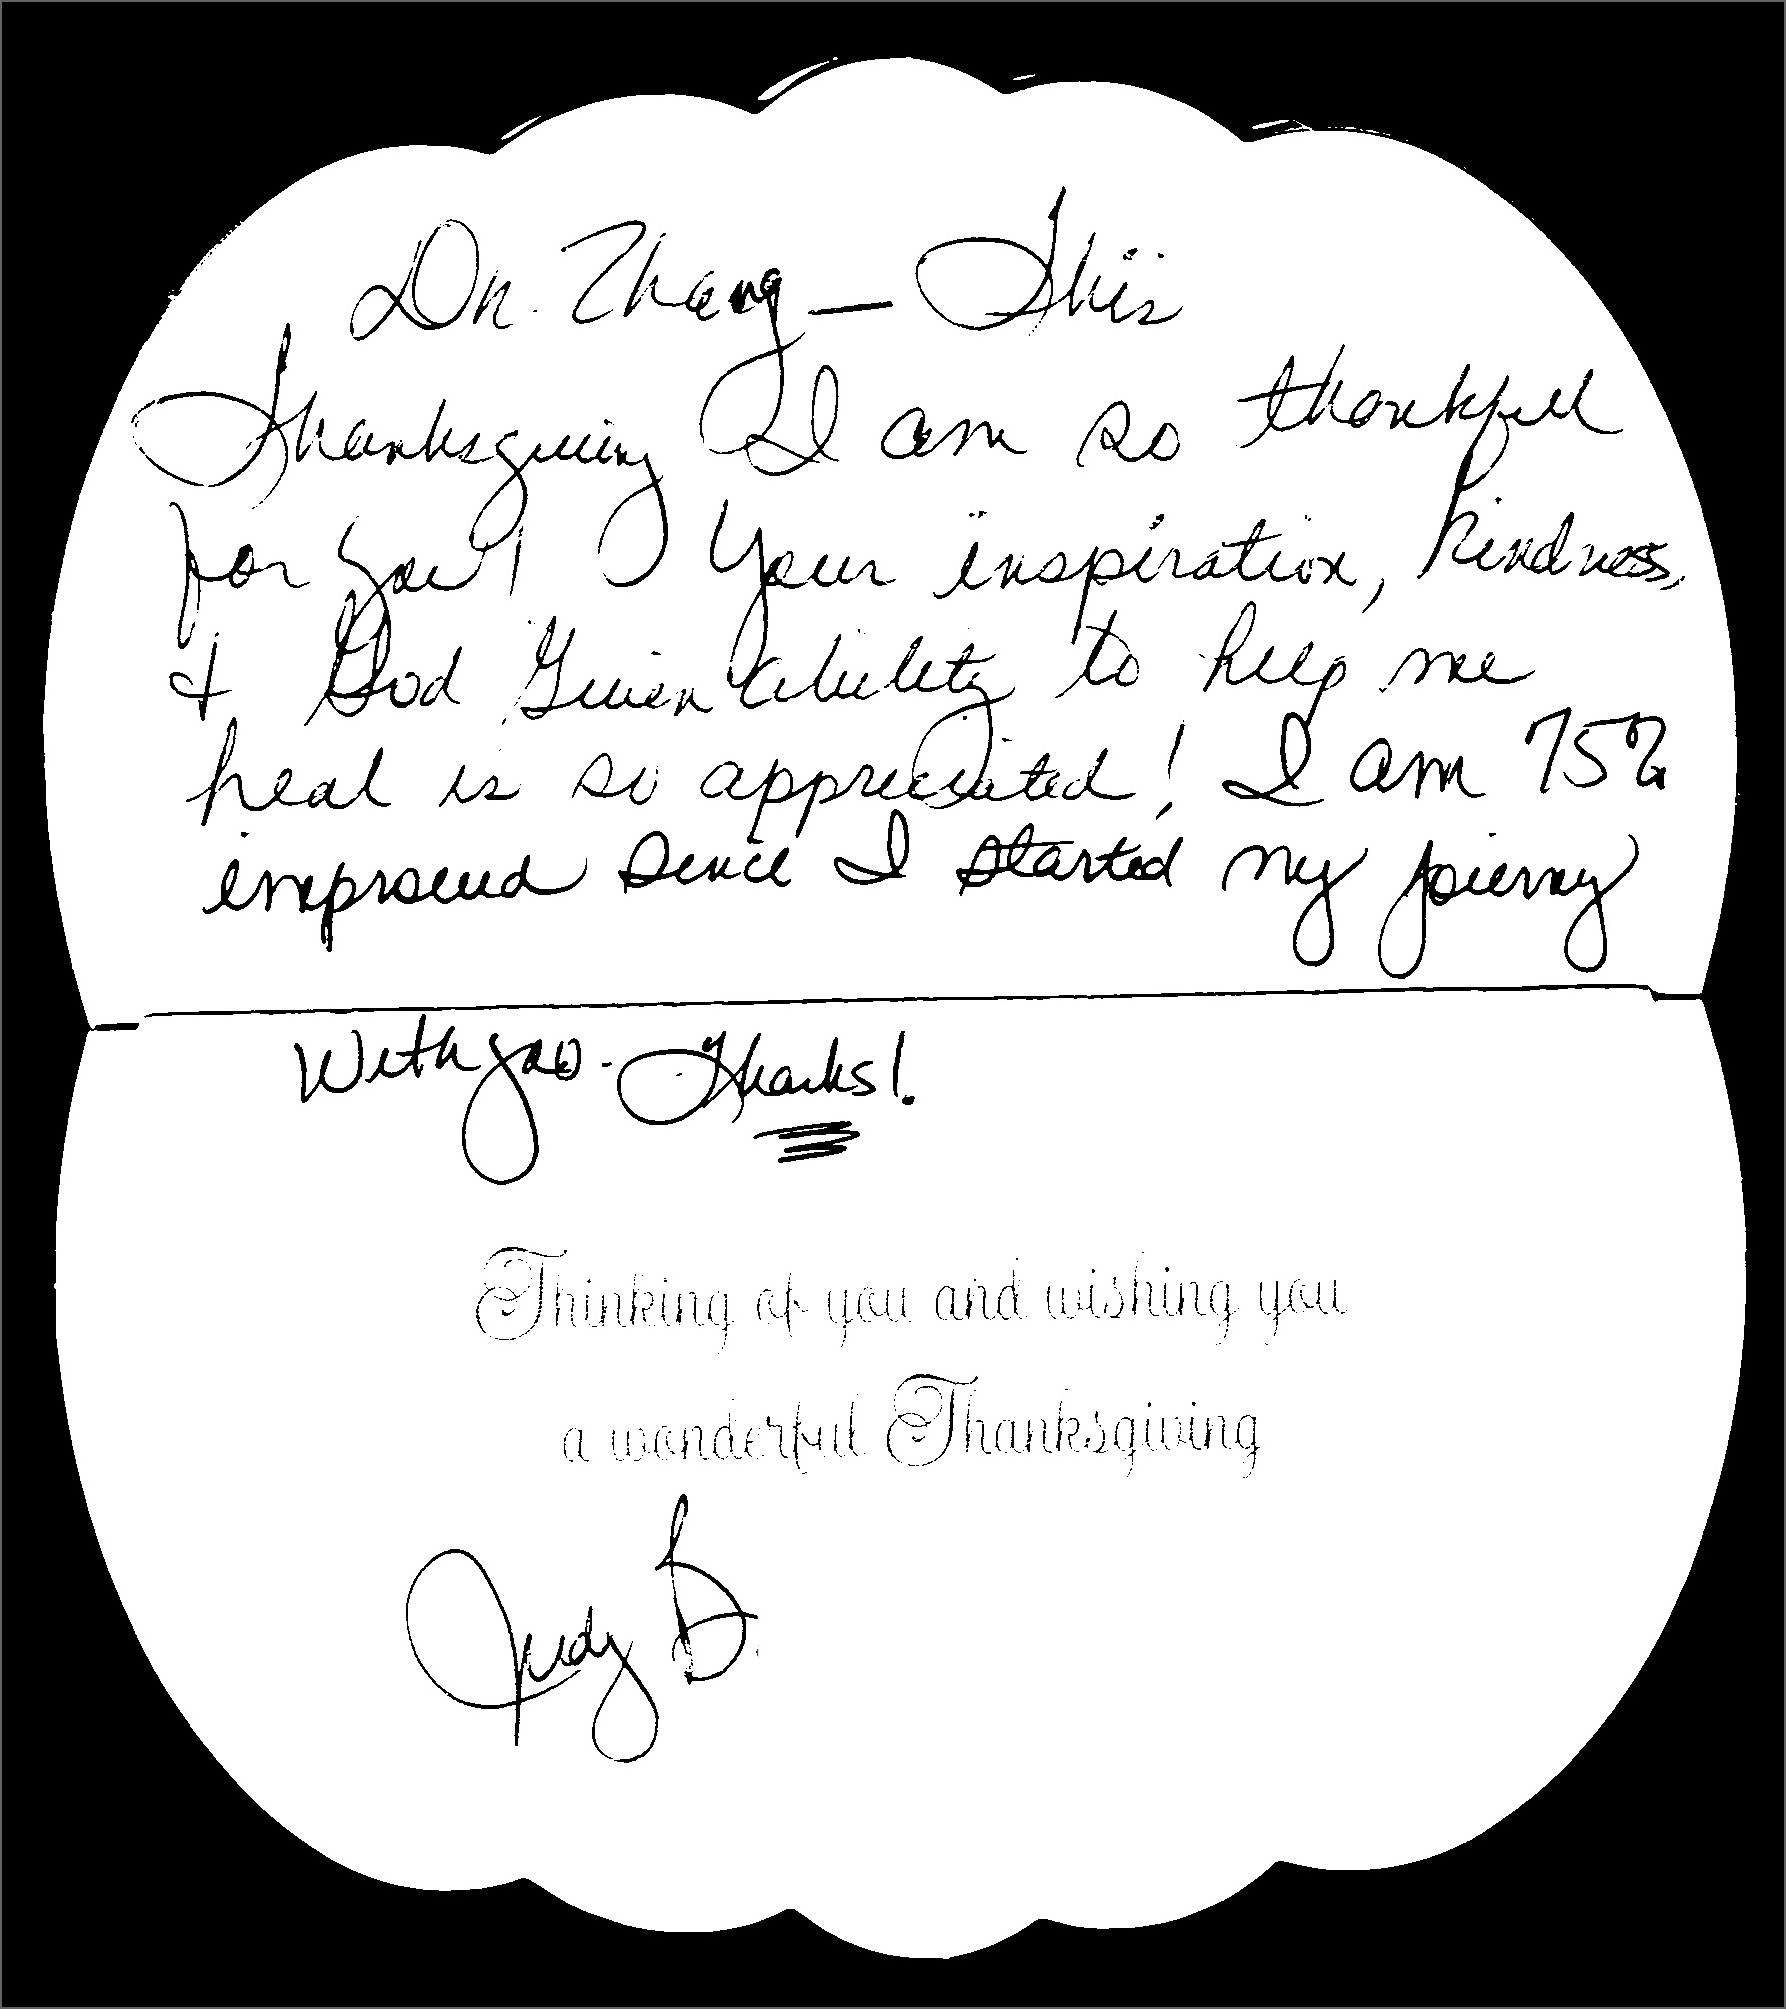 Dr. Zhang — This
Thanksgiving I am so thankful
for you! Your inspiration, kindness,
& God Given ability to help me
heal is so appreciated! I am 75%
improved since I started my journey
with you. Thanks!
Thinking of you and wishing you
a wonderful Thanksgiving
Judy B.